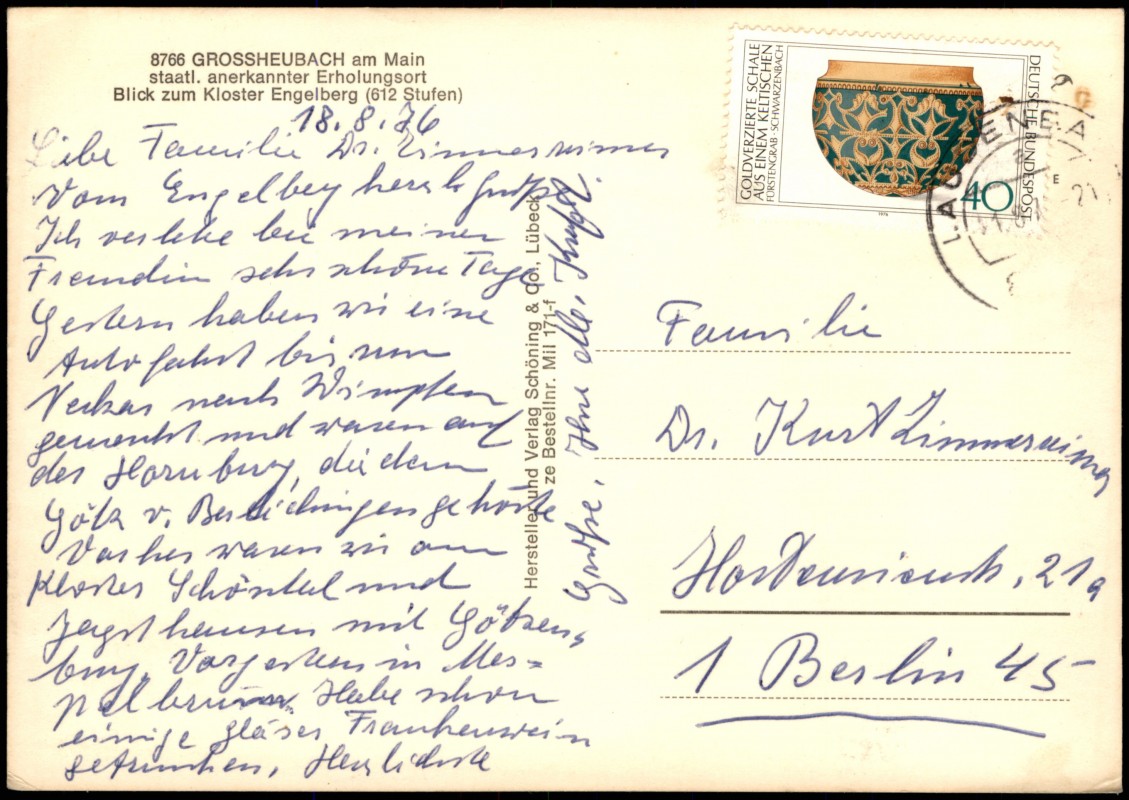 8766 GROSSHEUBACH am Main
staatl. anerkannter Erholungsort
Blick zum Kloster Engelberg (612 Stufen)
18.8.76
Liebe Familie Dr. Zimmereimer
Vom Engelberg herzl. Grüße.
Ich verlebe bei meiner
Freundin sehr schöne Tage
Gestern haben wir eine
Autofahrt bis zum
Neckar nach Wimpfen
gemacht und waren auf
der Hornburg, die dem
Götz v. Berlichingen gehörte
Vorher waren wir am
Kloster Schöntal und
Jagsthausen mit Götzen-
burg. Vorgestern in Mes=
pelbrunn. Habe schon
einige gläser Frankenwein
getrunken, Herzlichste
Grüße, Ihre alle
Hersteller und Verlag Schöning & Co., Lübeck
ze Bestellnr. Mil 171-f
GOLDVERZIERTE SCHALE
AUS EINEM KELTISCHEN
FÜRSTENGRAB · SCHWARZENBACH
DEUTSCHE BUNDESPOST
40
1976
LAUDENBA
Familie
Dr. Kurt Zimmereimer
Hortensienstr. 21a
1 Berlin 45